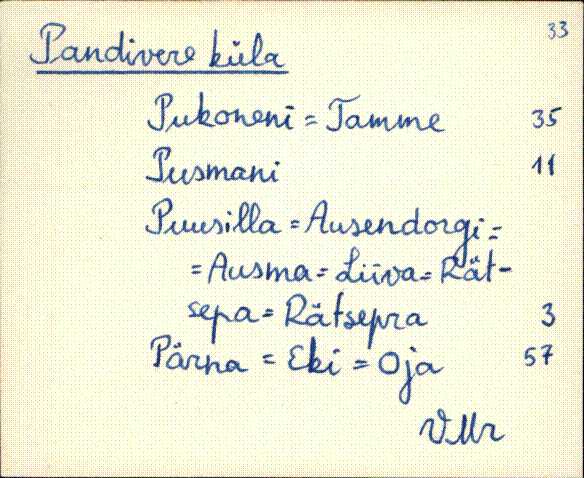 33
Pandivere küla
Pukoneni = Tamme 35
Pusmani 11
Puusilla = Ausendorgi =
= Ausma = Liiva = Rät-
sepa = Rätsepra 3
Pärna = Eki = Oja 57
VMr